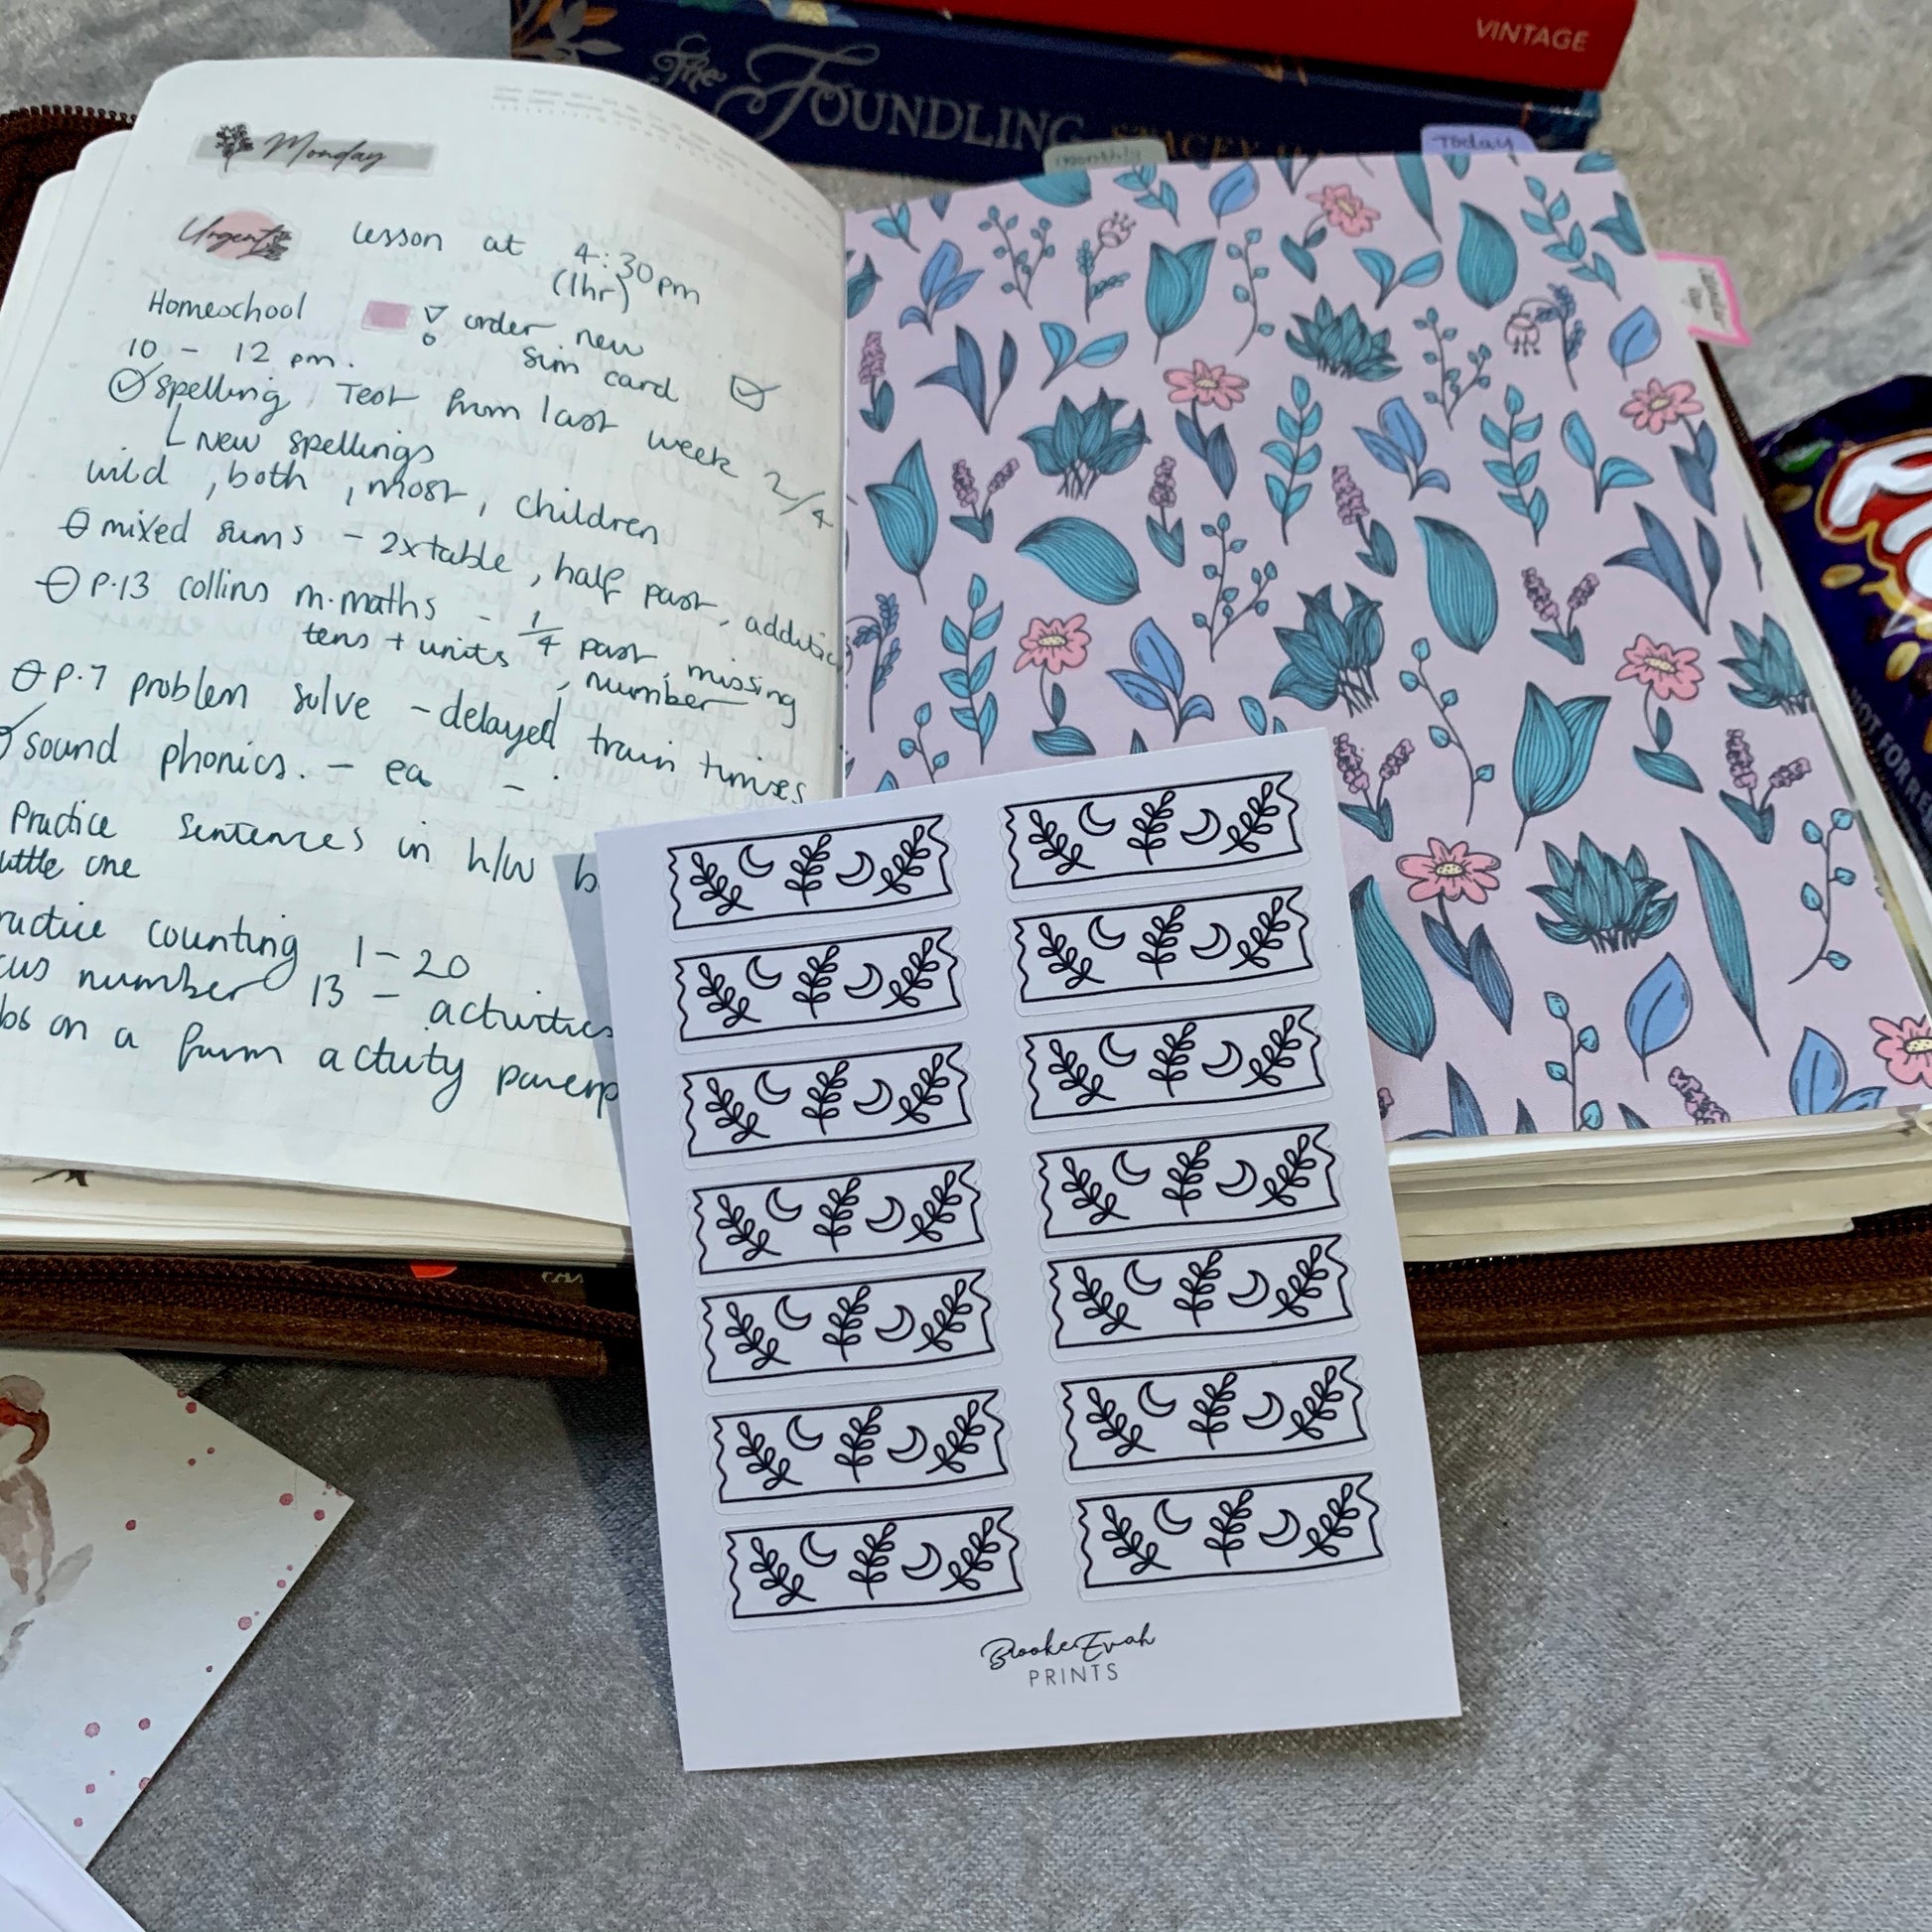 VINTAGE
The FOUNDLING STACEY
monthly
Today
Monday
Urgent
Lesson at 4:30pm
(1hr)
Homeschool
order new
sim card
10 - 12 pm.
spelling Test from last week 2/4
New spellings
wild, both, most, children
mixed sums - 2xtable, half past,
p.13 collins m.maths - 1/4 past, missing
tens + units, number
p.7 problem solve - delayed train times
sound phonics. - ea -
Practice sentences in h/w
little one
counting 1-20
number 13 - activities
on a farm
NOT FOR
BrookeEvah
PRINTS